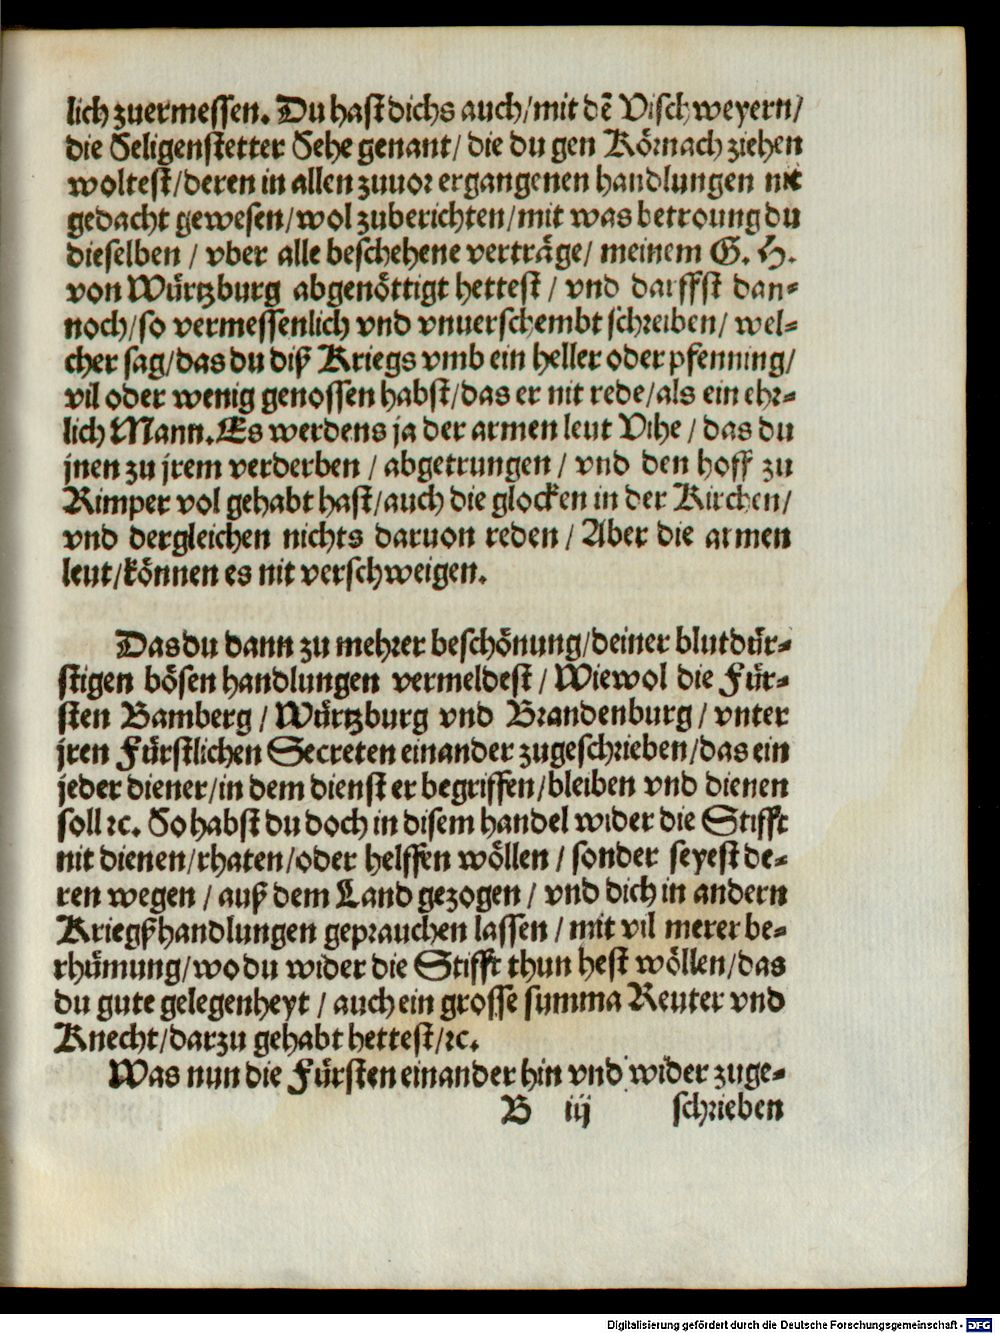 lich zuermessen. Du hast dichs auch/mit dē Visch weyern/
die Seligenstetter Sehe genant/ die du gen Körnach ziehen
woltest/deren in allen zuuor ergangenen handlungen nit
gedacht gewesen/wol zuberichten/mit was betroung du
dieselben / vber alle beschehene verträge/ meinem G. H.
von Würtzburg abgenöttigt hettest / vnd darffst dan-
noch/so vermessenlich vnd vnuerschembt schreiben/ wel-
cher sag/das du diß Kriegs vmb ein heller oder pfenning/
vil oder wenig genossen habst/das er nit rede/als ein ehr-
lich Mann. Es werdens ja der armen leut Vihe / das du
jnen zu jrem verderben / abgetrungen / vnd den hoff zu
Rimper vol gehabt hast/auch die glocken in der Kirchen/
vnd dergleichen nichts daruon reden / Aber die armen
leut/können es nit verschweigen.
Das du dann zu mehrer beschönung/deiner blutdür-
stigen bösen handlungen vermeldest / Wiewol die Für-
sten Bamberg / Würtzburg vnd Brandenburg / vnter
jren Fürstlichen Secreten einander zugeschrieben/das ein
jeder diener/in dem dienst er begriffen/bleiben vnd dienen
soll ꝛc. So habst du doch in disem handel wider die Stifft
nit dienen/rhaten/oder helffen wöllen / sonder seyest de-
ren wegen / auß dem Land gezogen / vnd dich in andern
Kriegßhandlungen geprauchen lassen / mit vil merer be-
rhümung/wo du wider die Stifft thun hest wöllen/das
du gute gelegenheyt / auch ein grosse summa Reuter vnd
Knecht/darzu gehabt hettest/ꝛc.
Was nun die Fürsten einander hin vnd wider zuge-
B iij schrieben
Digitalisierung gefördert durch die Deutsche Forschungsgemeinschaft - DFG